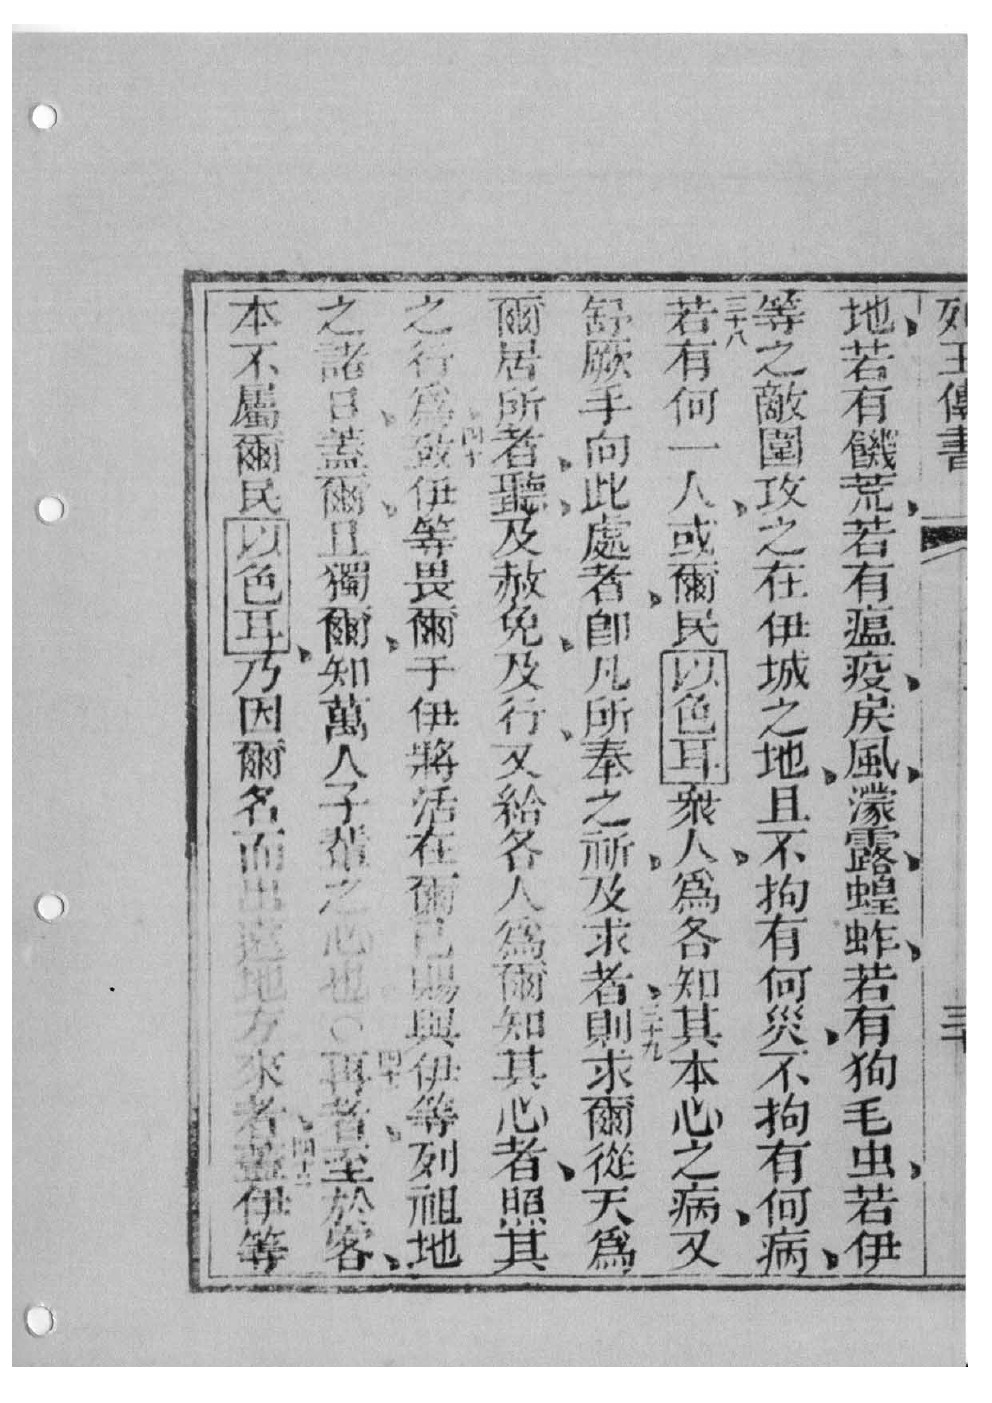 列王傳書 三十
地若有饑荒若有瘟疫戾風濛露蝗蚱若有狗毛虫若伊
等之敵圍攻之在伊城之地且不拘有何災不拘有何病
三十八若有何一人或爾民以色耳衆人爲各知其本心之病又
舒厥手向此處者卽凡所奉之祈及求者三十九則求爾從天爲
爾居所者聽及赦免及行又給各人爲爾知其心者照其
之行爲四十致伊等畏爾于伊將活在爾已賜與伊等列祖地
之諸日蓋爾且獨爾知萬人子輩之心也〇四十一再者至於客
本不屬爾民以色耳乃因爾名而出遠地方來者四十二蓋伊等